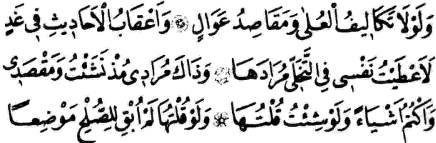 وَلَوْلَا تَكَالِيفُ الْعُلَى وَمَقَاصِدُ عَوَالٍ ۞ وَاَعْقَابُ الْاَحَادِيثِ فِى غَدٍ
لَاَعْطَيْتُ نَفْسِى فِى التَّخَلِّى مُرَادَهَا ۞ وَذَاكَ مُرَادِى مُذْ نَشَئْتُ وَمَقْصَدِى
وَاَكْتُمُ اَشْيَاءً وَلَوْ شِئْتُ قُلْتُهَا ۞ وَلَوْ قُلْتُهَا لَمْ اُبْقِ لِلصُّلْحِ مَوْضِعًا